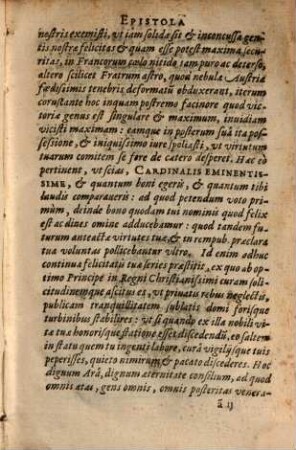 EPISTOLA
nostris exemisti, vt iam solida sit & inconcussa gen-
tis nostræ felicitas & quam esse potest maxima secu-
ritas, in Francorum cælo nitido iam puro ac deterso,
altero scilicet Fratrum astro, quod nebula Austriæ
fœdissimis tenebris deformatū obduxerant, iterum
coruscante hoc inquam postremo facinore quod vic-
toria genus est singulare & maximum, inuidiam
vicisti maximam: eamque in posterum suâ ita pos-
sessione, & iniquissimo iure spoliasti, vt virtutum
tuarum comitem se fore de cætero desperet. Hac eò
pertinent, vt scias, CARDINALIS EMINENTIS-
SIME, & quantum boni egeris, & quantum tibi
laudis comparaueris: ad quod petendum voto pri-
mùm, deinde bono quodam tui nominis quod felix
est ac diues omine adducebamur: quod tandem fu-
turum anteactæ virtutes tuæ & in rempub. præclara
tua voluntas pollicebantur vltro. Id enim adhuc
continua felicitatis tuæ series præstitit, ex quo ab op-
timo Principe in Regni Christianissimi curam soli-
citudinemque ascitus es, vt priuatis rebus neglectis,
publicam tranquillitatem sublatis domi forisque
turbinibus stabilires: vt si quando ex illa nobili vi-
tæ tua honorisque statione esset discedendū, eo saltem
in statu quem tu ingenti labore, curâ vigilysque tuis
peperisses, quieto nimirum & pacato discederes. Hoc
dignum Arâ, dignum æternitate consilium, ad quod
omnis ætas, gens omnis, omnis posteritas venera-
ā ij